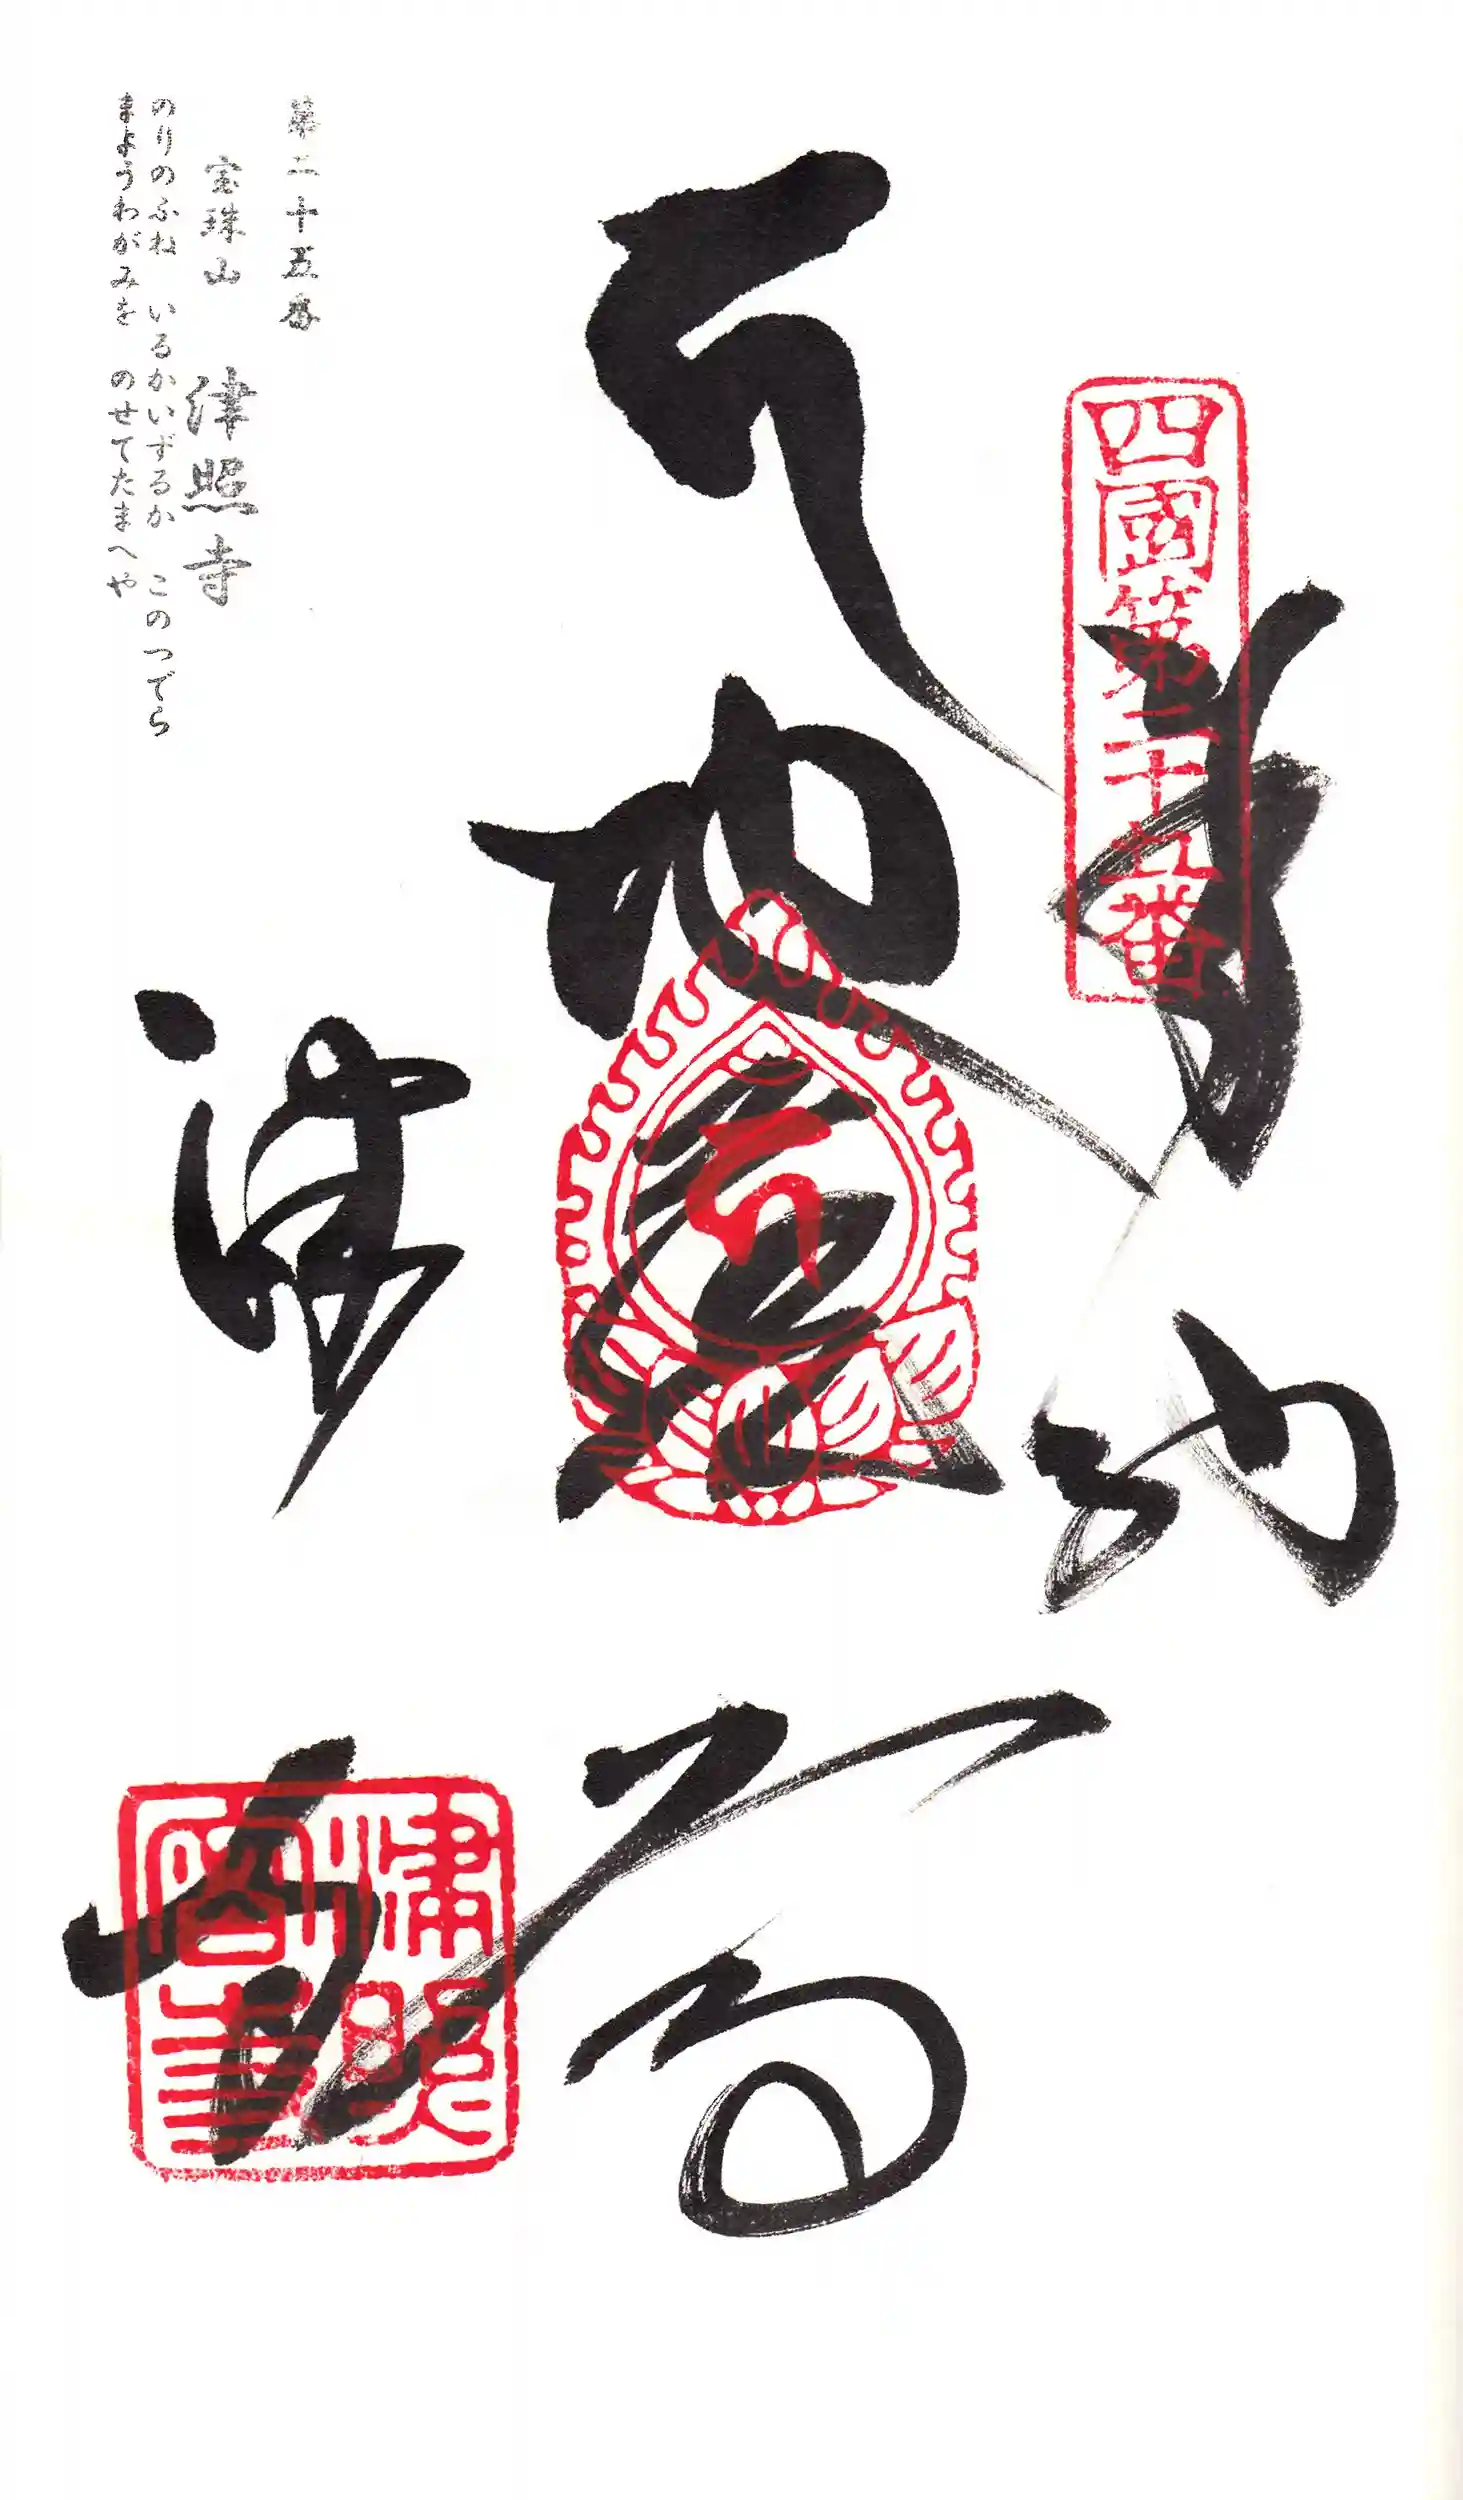 四國第二十五番
奉納
地蔵
津寺
第二十五番
宝珠山 津照寺
のりのふね いるかいずるか このつでら
まようわがみを のせてたまへや